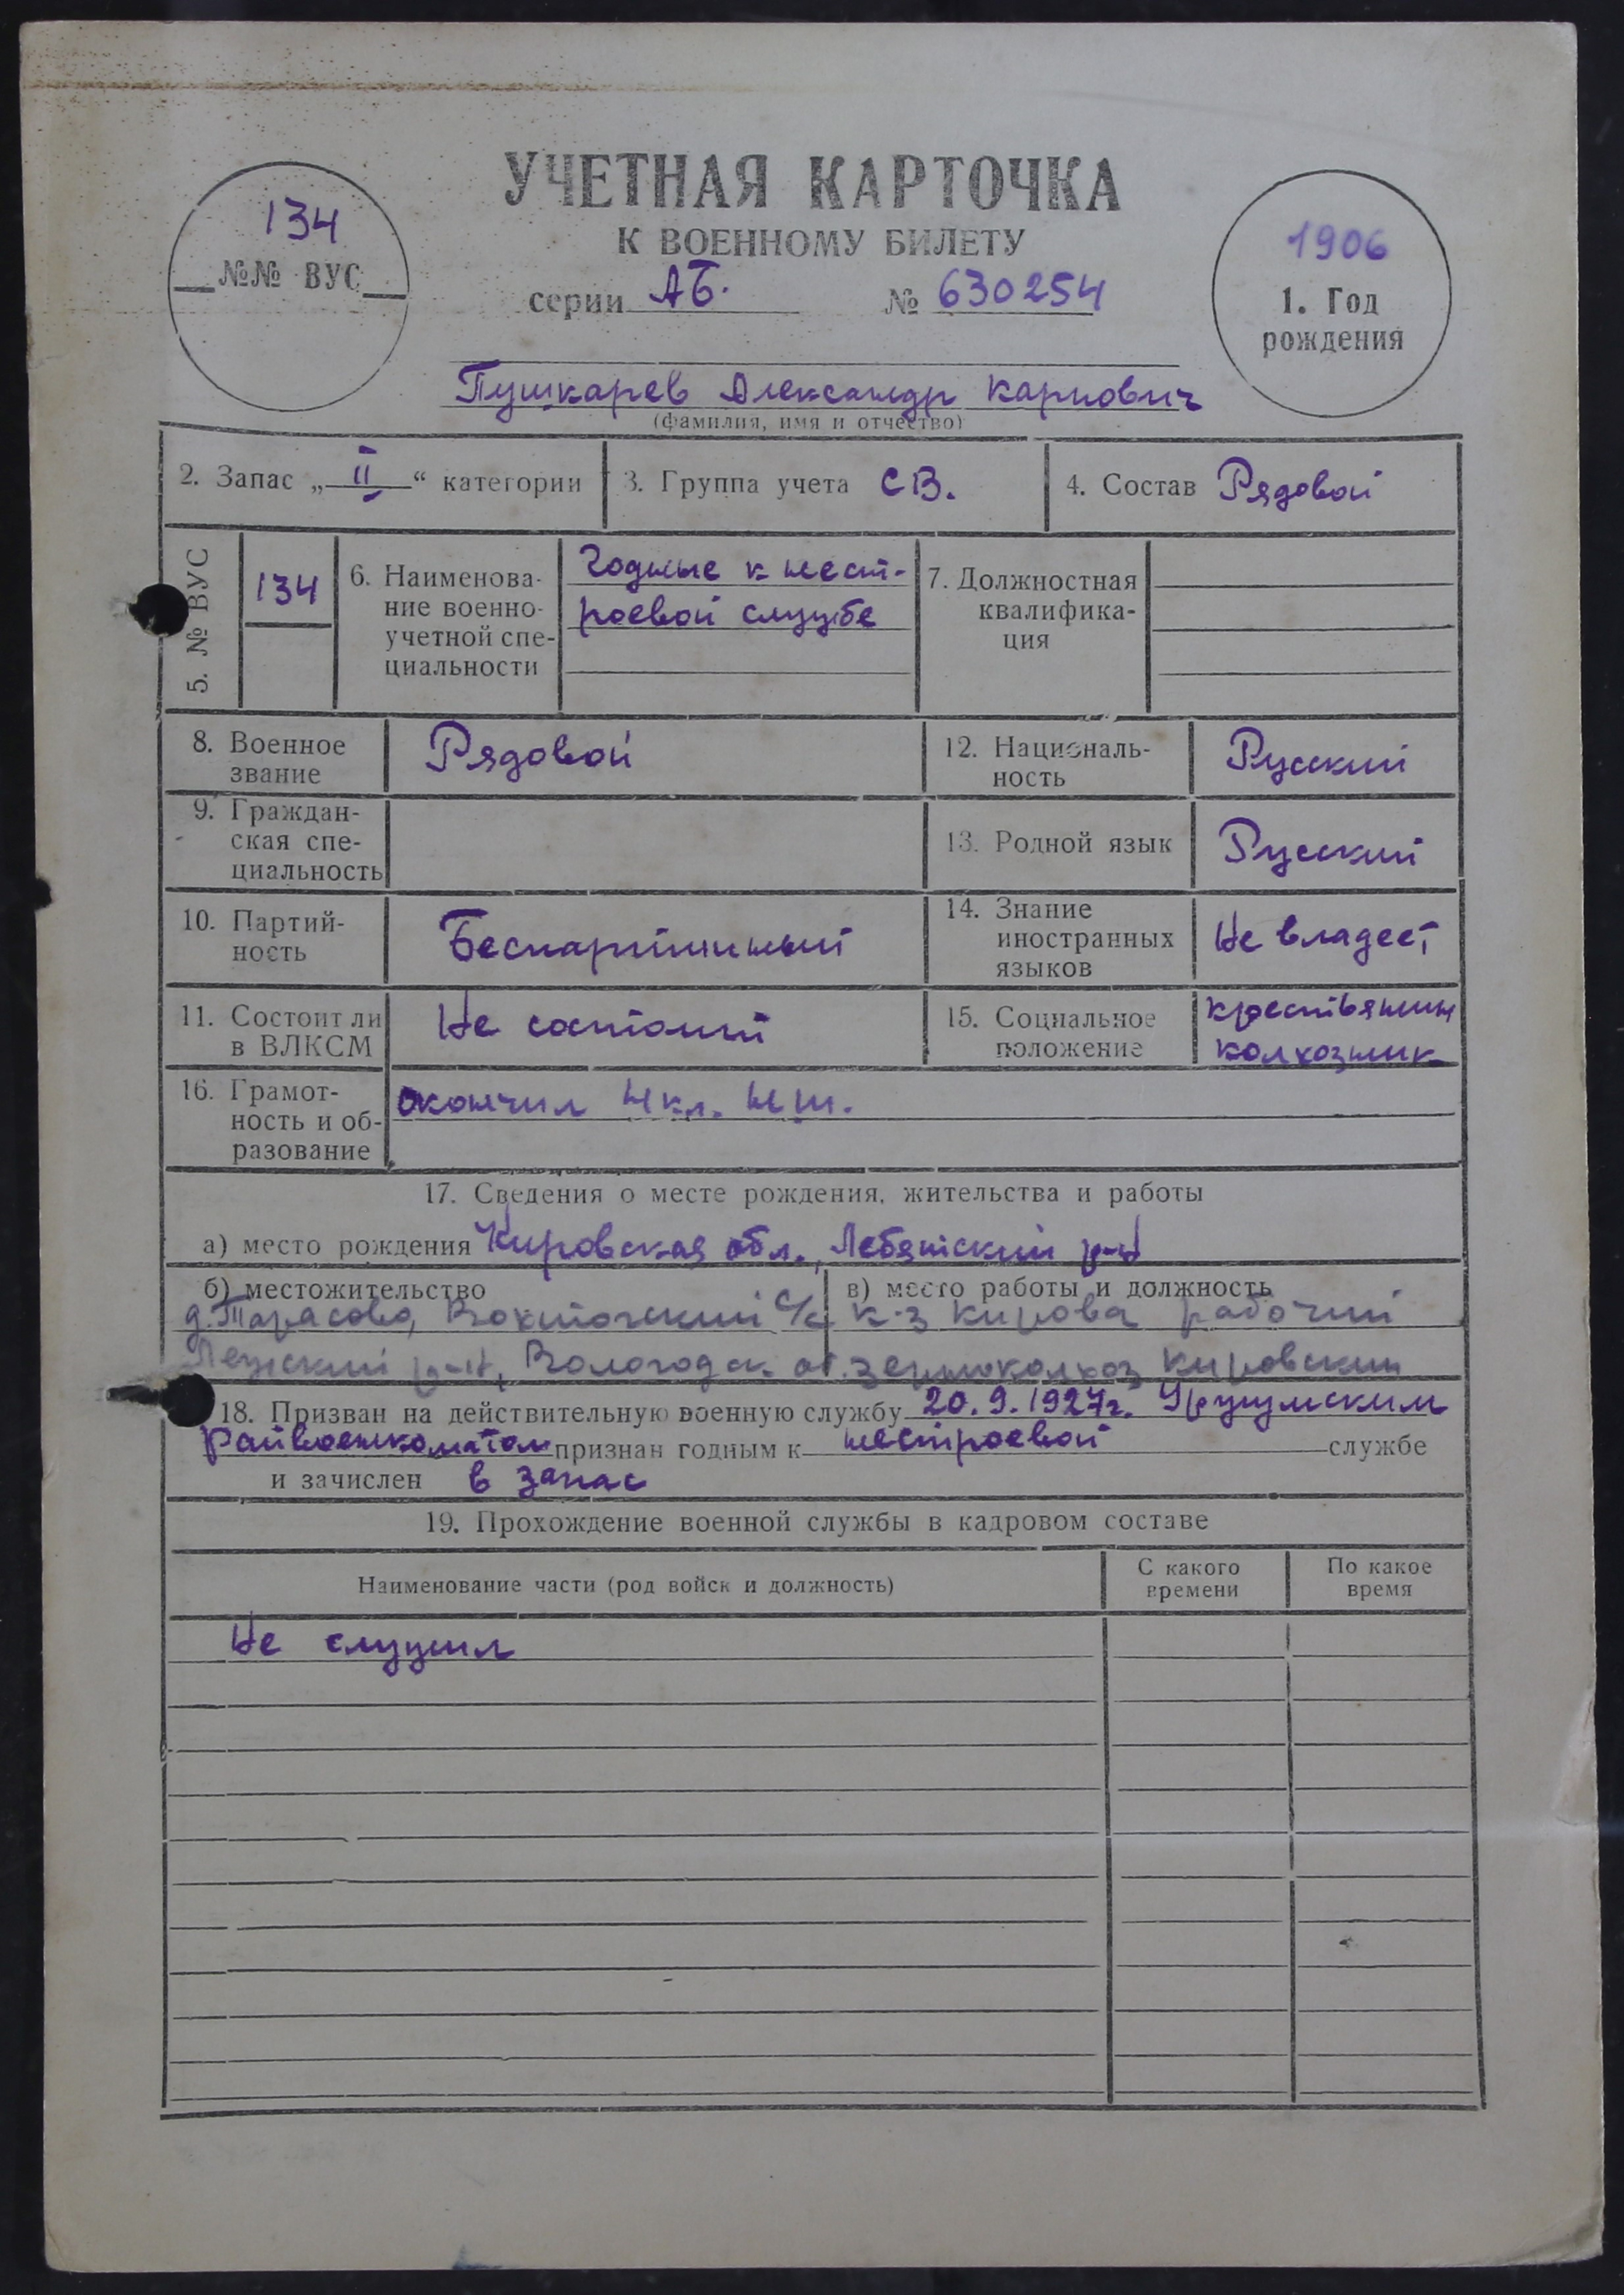 УЧЕТНАЯ КАРТОЧКА
К ВОЕННОМУ БИЛЕТУ
серии АБ. № 630254
134
№№ ВУС
1906
1. Год
рождения
Пушкарев Александр Карпович
(фамилия, имя и отчество)
2. Запас „II“ категории
3. Группа учета СВ.
4. Состав Рядовой
5. № ВУС
134
6. Наименова-
ние военно-
учетной спе-
циальности
Годные к нест-
роевой службе
7. Должностная
квалифика-
ция
8. Военное
звание
Рядовой
12. Националь-
ность
Русский
9. Граждан-
ская спе-
циальность
13. Родной язык
Русский
10. Партий-
ность
Беспартийный
14. Знание
иностранных
языков
Не владеет
11. Состоит ли
в ВЛКСМ
Не состоит
15. Социальное
положение
крестьянин
колхозник
16. Грамот-
ность и об-
разование
окончил 4 кл. НШ.
17. Сведения о месте рождения, жительства и работы
а) место рождения Кировская обл., Лебяжский р-н
б) местожительство
д. Тарасово, С/с
р-н, Вологодск. об.
в) место работы и должность
к-з Кирова рабочий
Кировский
18. Призван на действительную военную службу 20.9.1927г. Уржумским
Райвоенкоматом признан годным к нестроевой службе
и зачислен в запас
19. Прохождение военной службы в кадровом составе
Наименование части (род войск и должность)
С какого
времени
По какое
время
Не служил